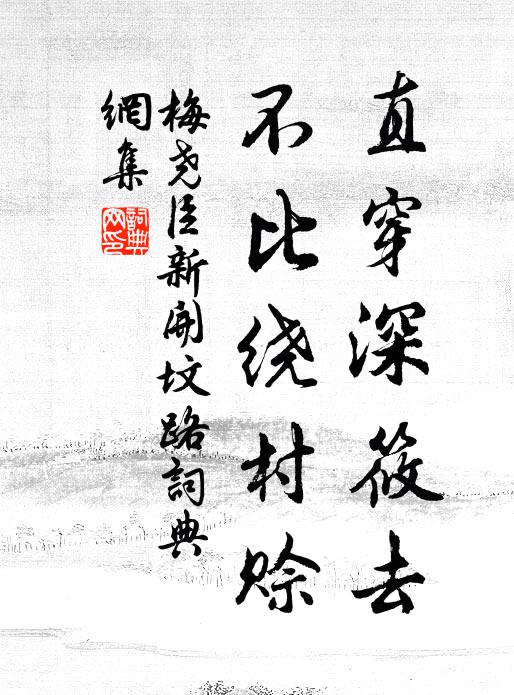 直穿深筱去
不比绕村赊
梅尧臣新開坟路詞典
網集
詞典網印